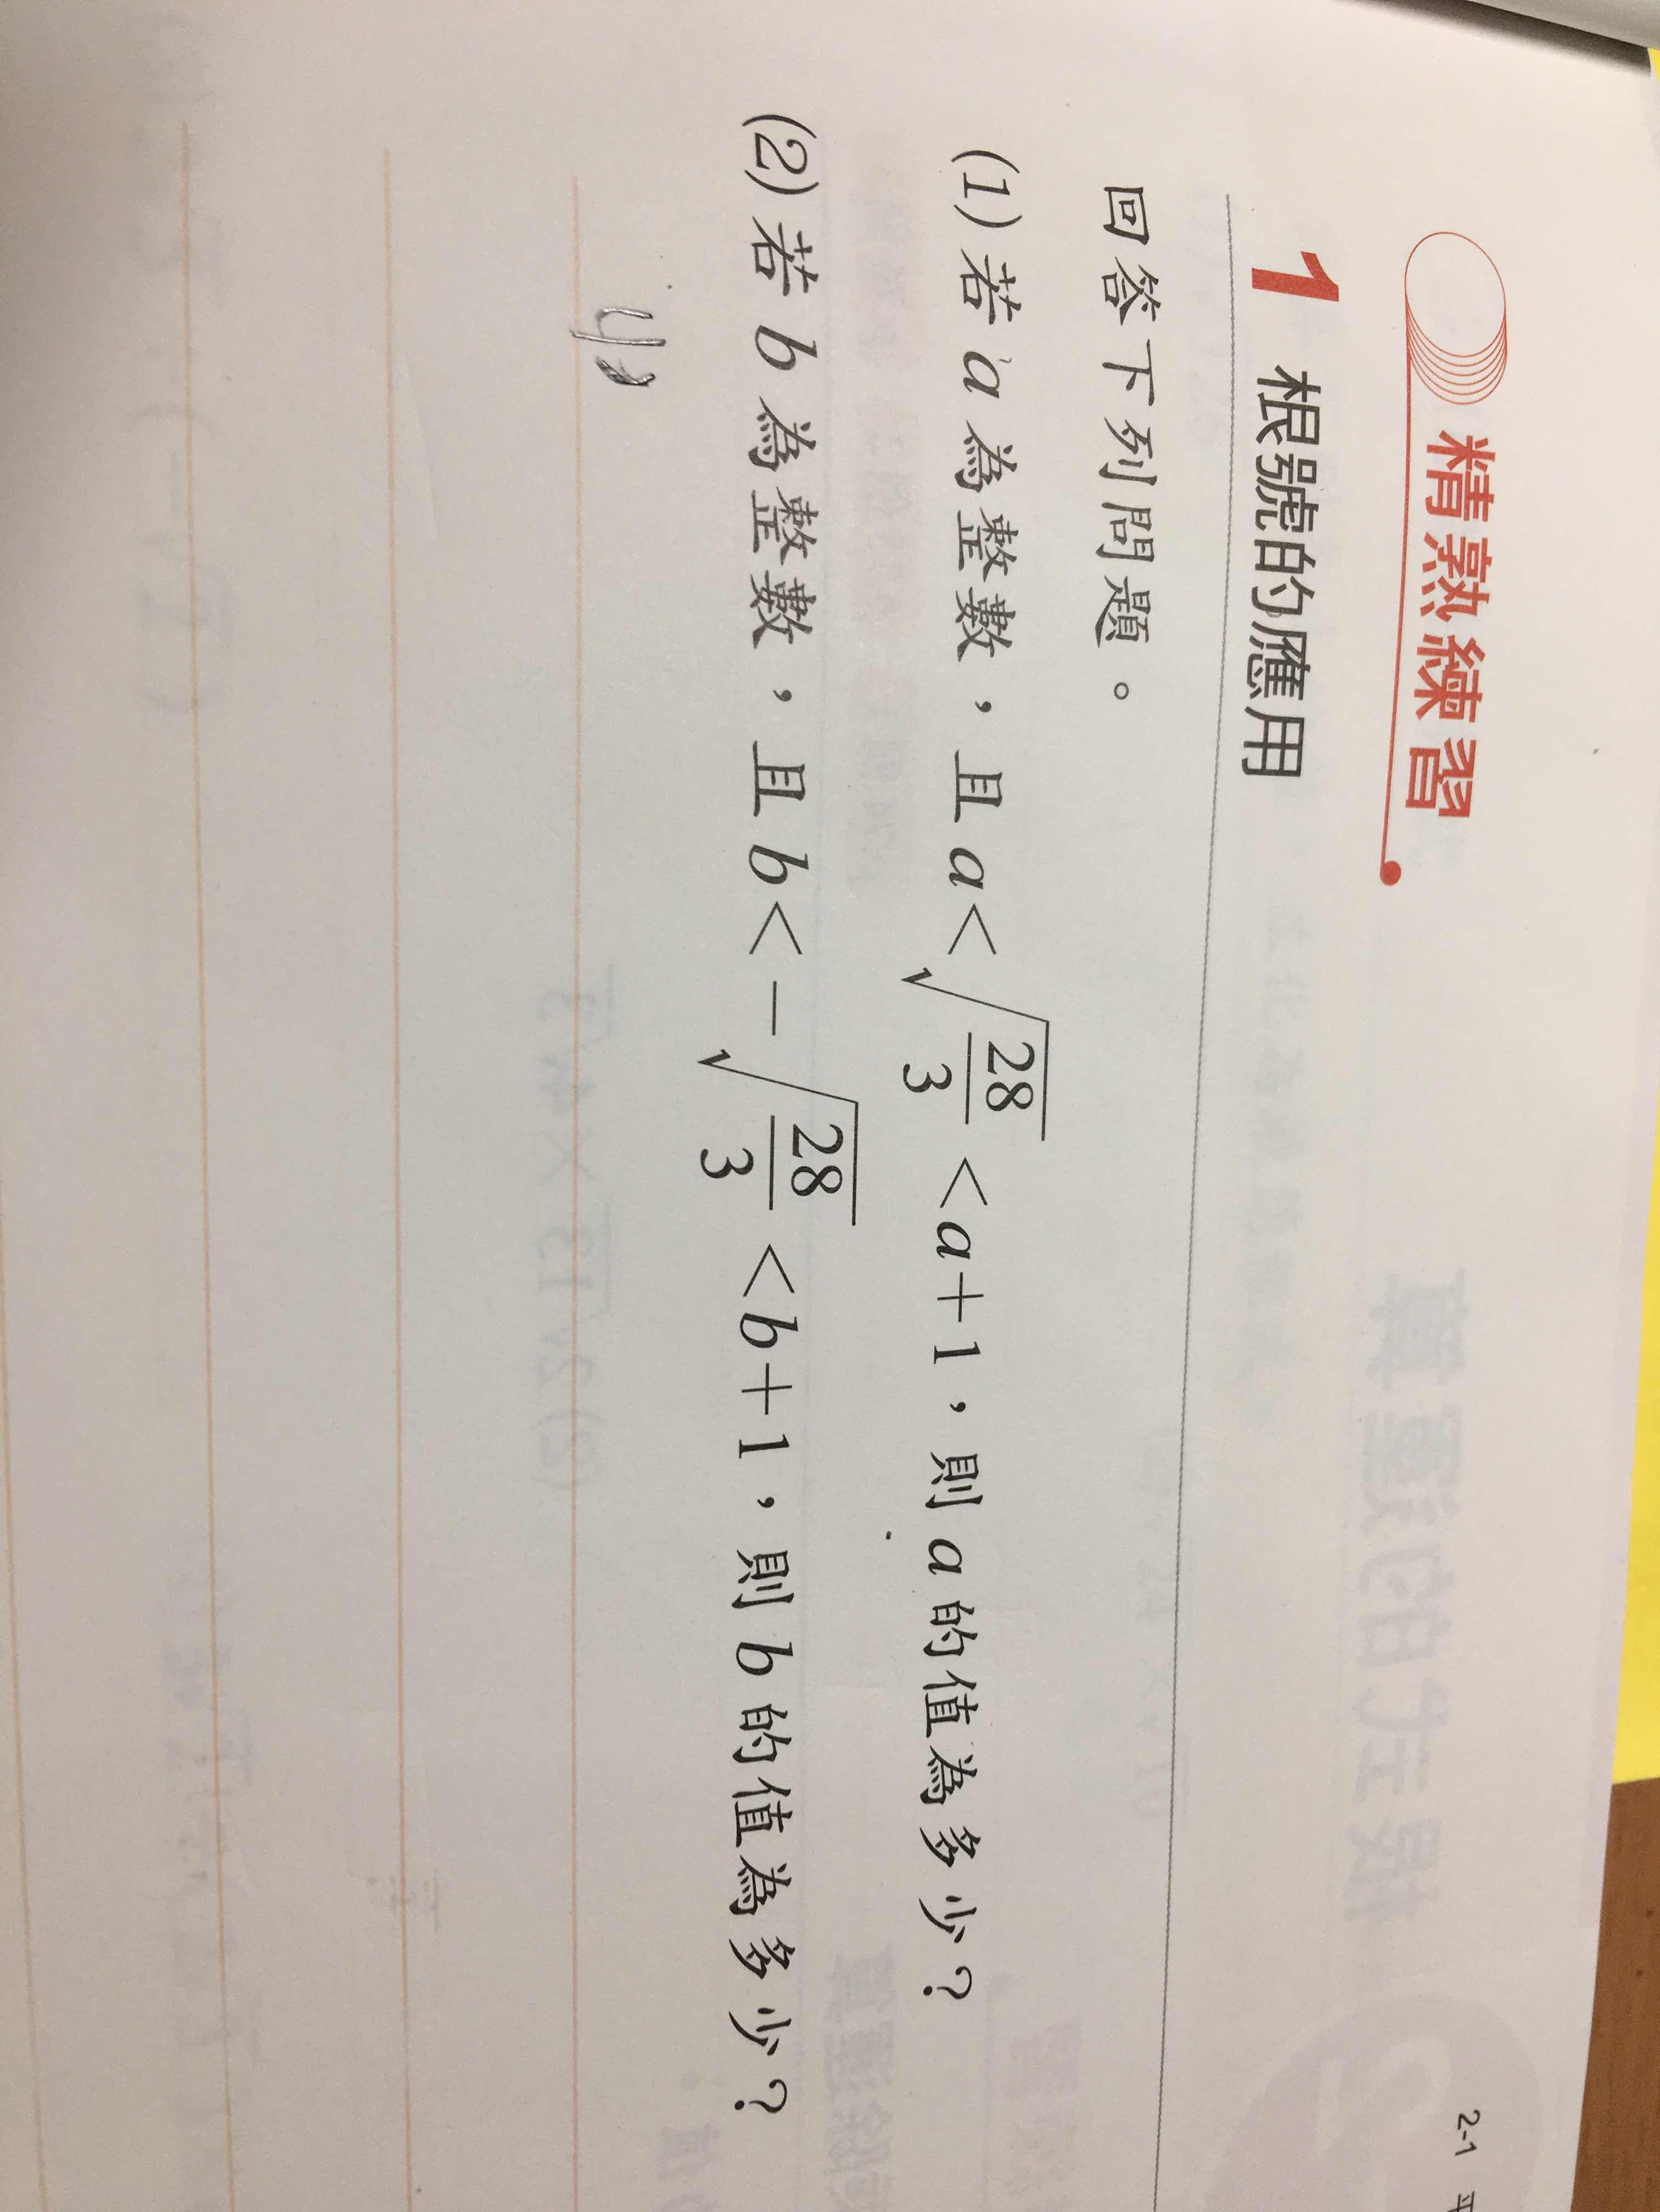 2-1 平
精熟練習
1 根號的應用
回答下列問題。
(1) 若 a 為整數,且 a<√(28/3)<a+1,則 a 的值為多少?
(2) 若 b 為整數,且 b<-√(28/3)<b+1,則 b 的值為多少?